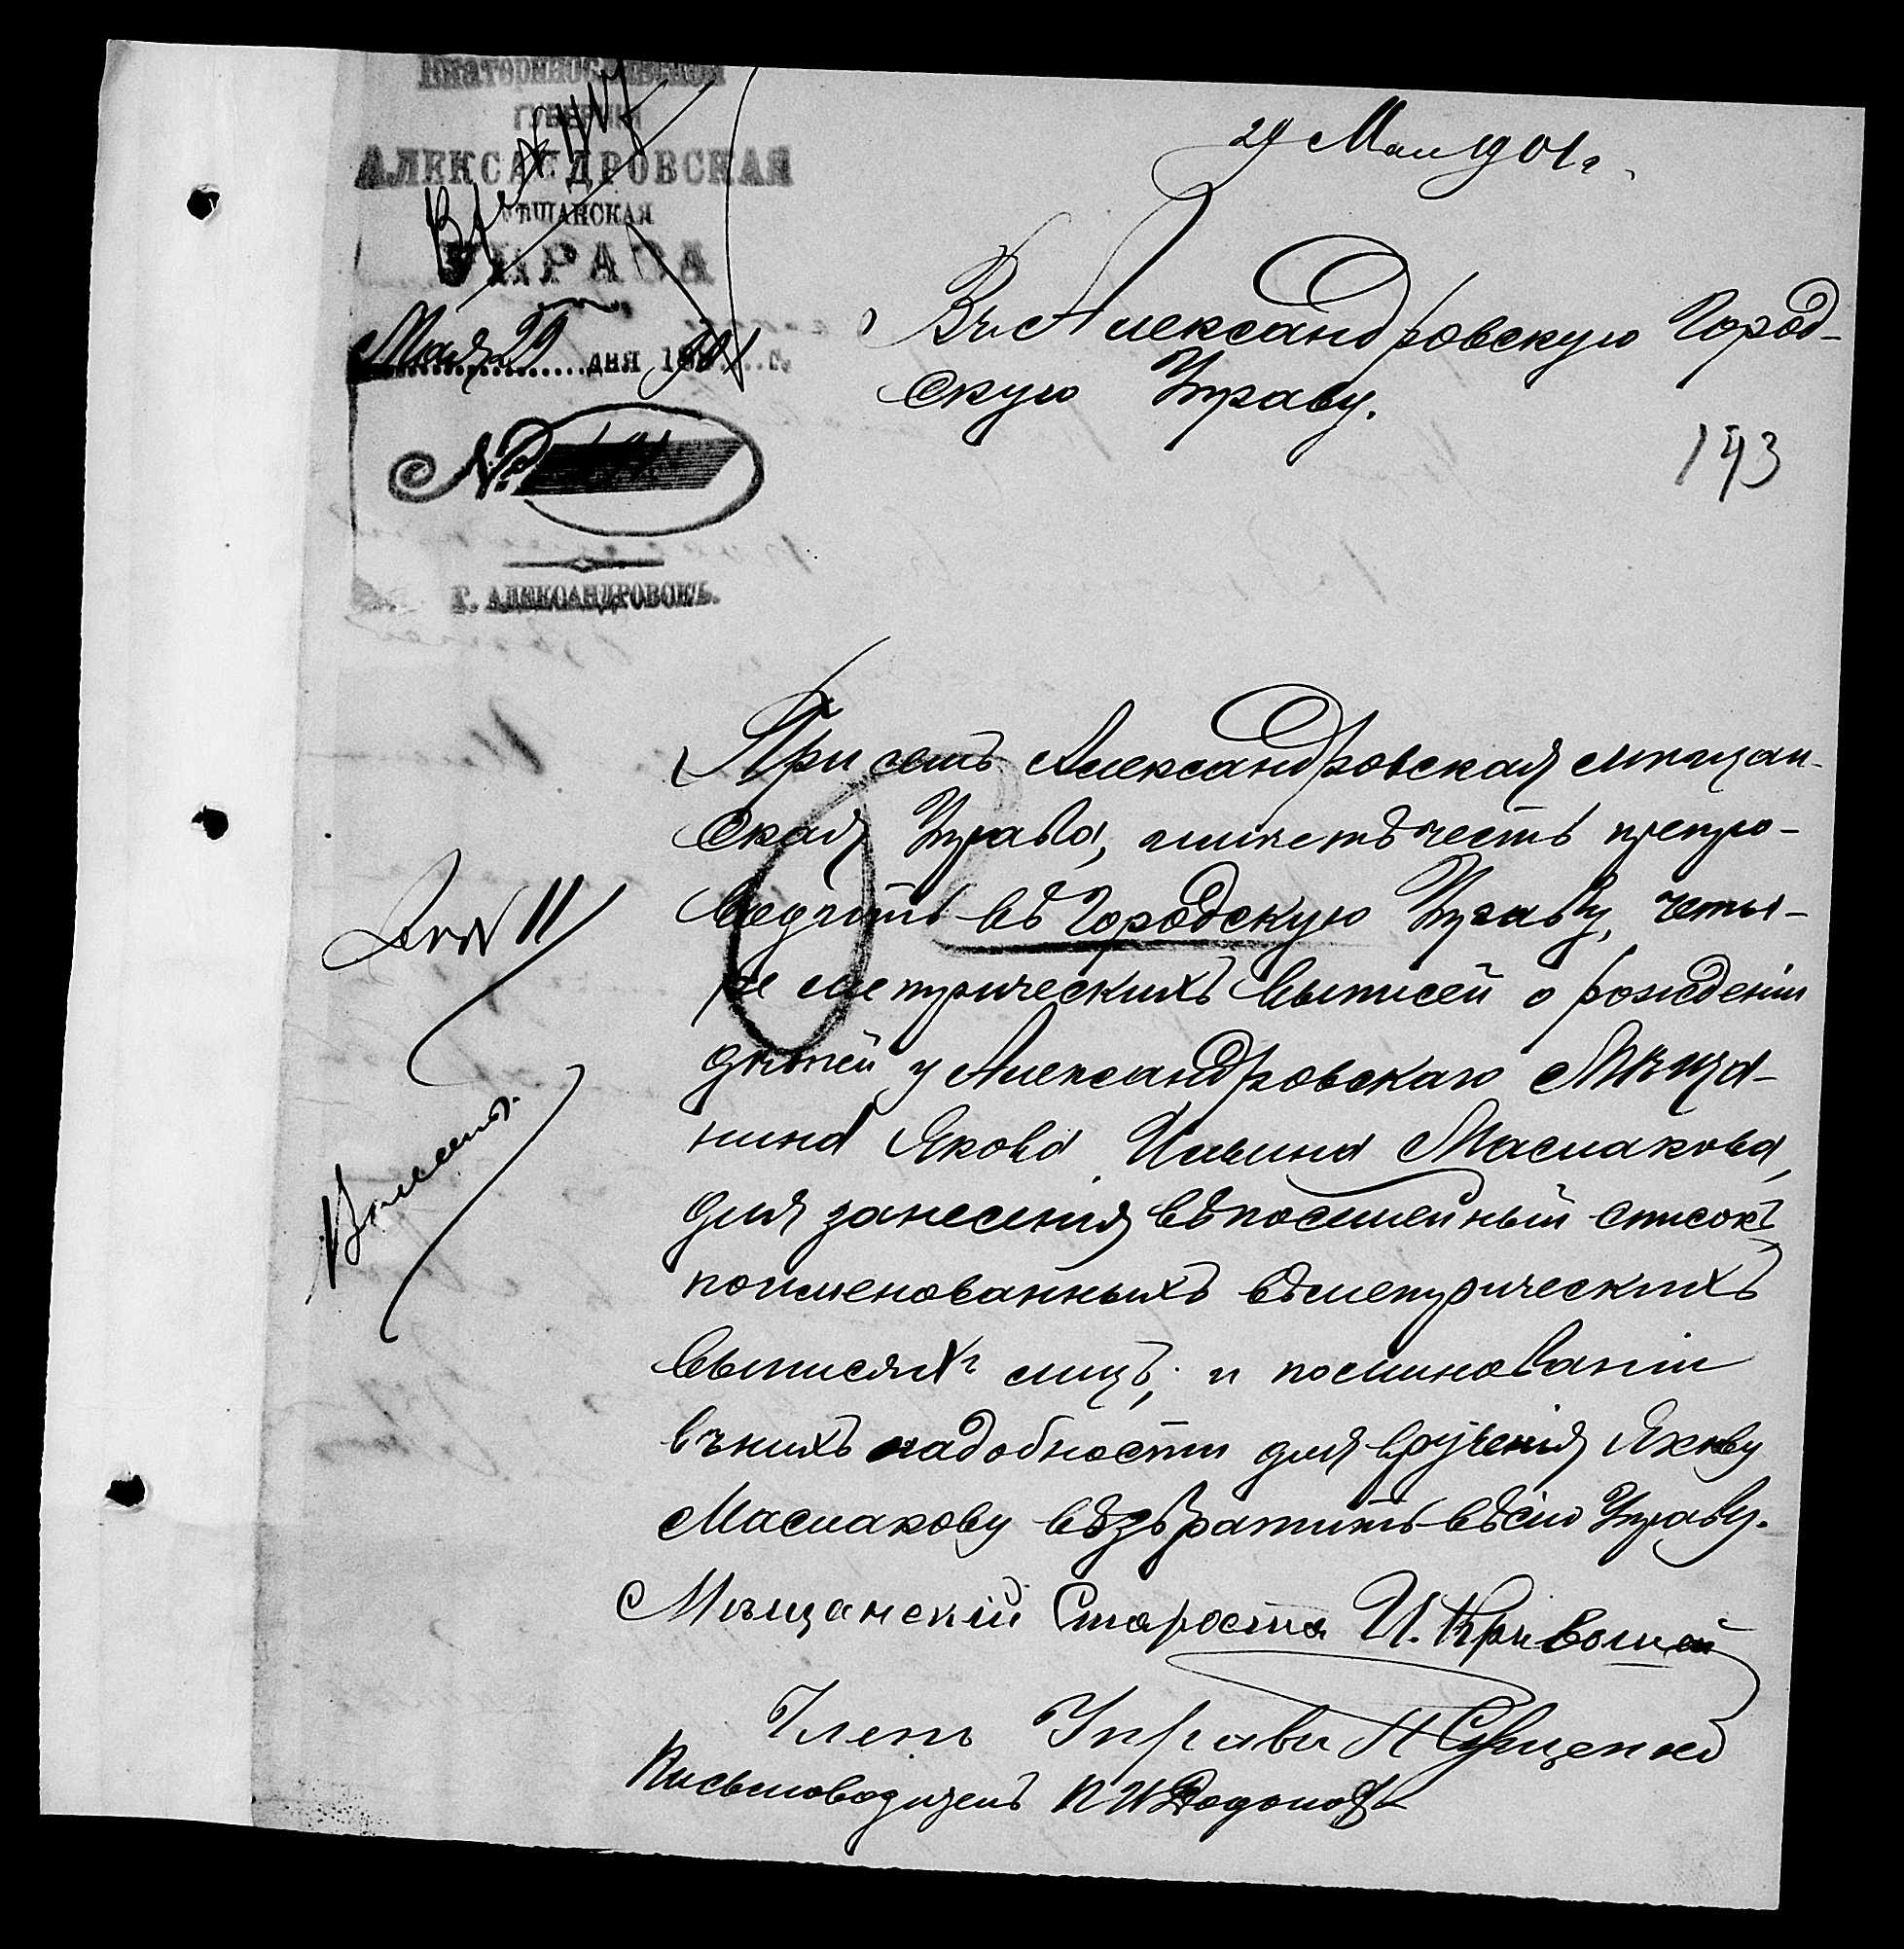 Екатеринославской
ГУБЕРНІИ
АЛЕКСАНДРОВСКАЯ
МѢЩАНСКАЯ
УПРАВА
Мая 29 дня 1901 г.
№
Г. АЛЕКСАНДРОВСКЪ.
29 Мая 1901 г.
Въ Александровскую Город-
скую Управу.
193
При семъ Александровская мѣщан-
ская Управа, имѣетъ честь препро-
водить въ Городскую Управу, четы-
ре метрическихъ выписей о рожденіи
дѣтей у Александровскаго Мѣща-
нина Якова Ильина Маслакова,
для занесенія въ посемейный списокъ
поименованныхъ въ метрическихъ
выписяхъ лицъ; и поминованіи
въ нихъ надобности для врученія Якову
Маслакову възвратить въ сію Управу.
Мѣщанскій Староста И. Кривошей
Членъ Управы
Письмоводитель